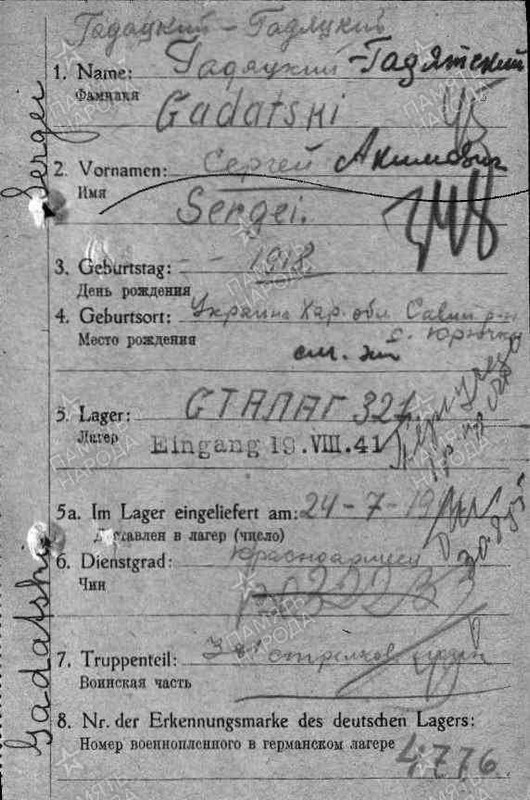 Гадацкий - Гадяцкий
1. Name: Гадяцкий - Гадятский
Фамилия
Gadatski
2. Vornamen: Сергей Акимович
Имя
Sergei.
3. Geburtstag: - - 1918
День рождения
4. Geburtsort: Украина Хар. обл. Савин. р-н
Место рождения с.
см.
5. Lager: СТАЛАГ 321
Лагерь Eingang 19. VIII. 41
5a. Im Lager eingeliefert am: 24-7-19
Доставлен в лагерь (число)
6. Dienstgrad: Красноармеец
Чин
7. Truppenteil: стрелков.
Воинская часть
8. Nr. der Erkennungsmarke des deutschen Lagers:
Номер военнопленного в германском лагере 4776
Sergei
Gadatski
ПАМЯТЬ НАРОДА